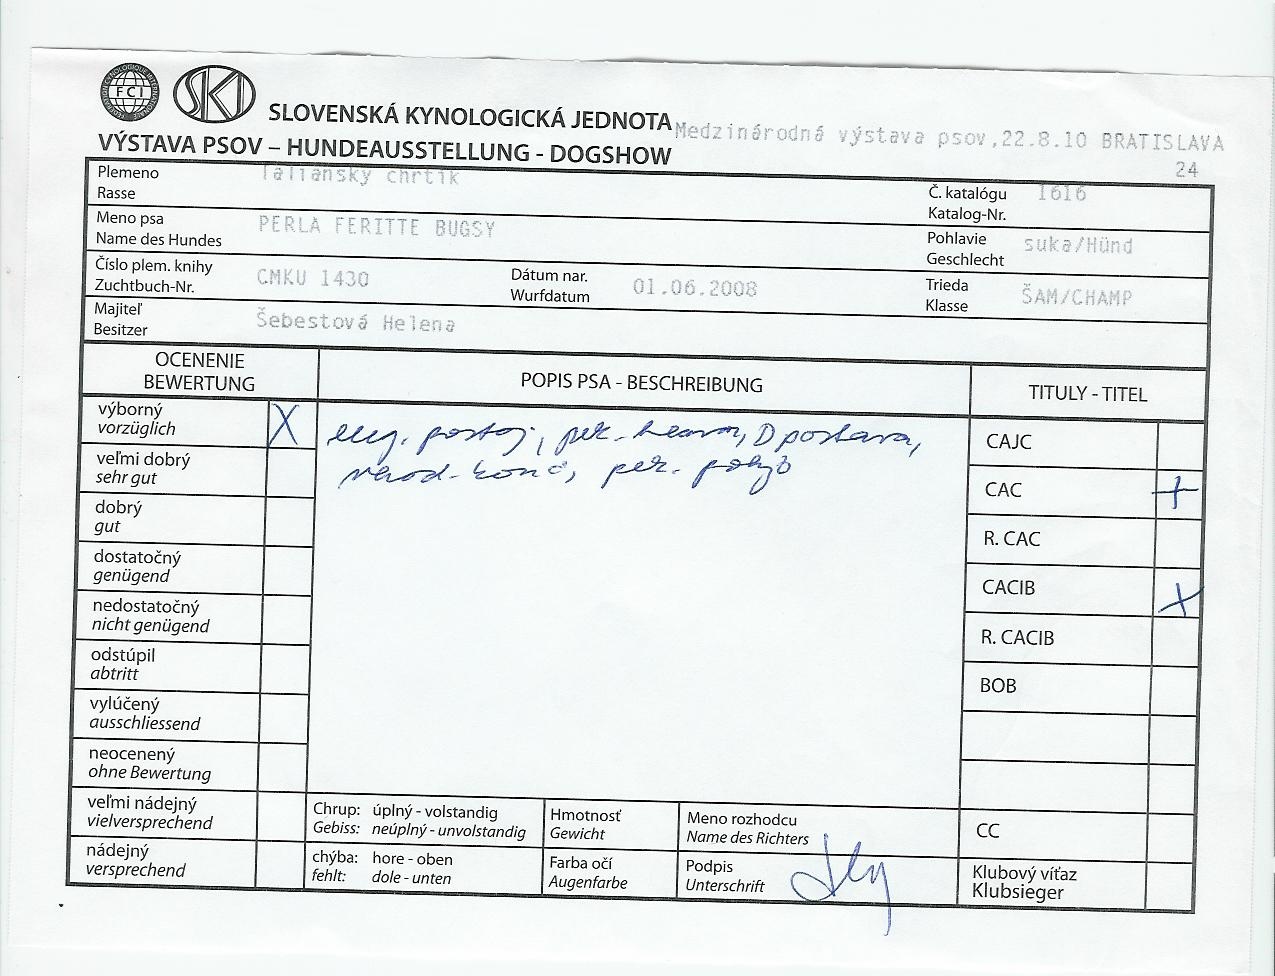 FCI SKJ SLOVENSKÁ KYNOLOGICKÁ JEDNOTA
Medzinárodná výstava psov,22.8.10 BRATISLAVA
VÝSTAVA PSOV – HUNDEAUSSTELLUNG - DOGSHOW
24
Plemeno
Rasse
Taliansky chrtík
Č. katalógu
Katalog-Nr.
1616
Meno psa
Name des Hundes
PERLA FERITTE BUGSY
Pohlavie
Geschlecht
suka/Hünd
Číslo plem. knihy
Zuchtbuch-Nr.
CMKU 1430
Dátum nar.
Wurfdatum
01.06.2008
Trieda
Klasse
ŠAM/CHAMP
Majiteľ
Besitzer
Šebestová Helena
OCENENIE
BEWERTUNG
POPIS PSA - BESCHREIBUNG
TITULY - TITEL
výborný
vorzüglich
X
veľmi dobrý
sehr gut
dobrý
gut
dostatočný
genügend
nedostatočný
nicht genügend
odstúpil
abtritt
vylúčený
ausschliessend
neocenený
ohne Bewertung
veľmi nádejný
vielversprechend
nádejný
versprechend
postoj, pek. hlava, D postava,
pek. pohyb
CAJC
CAC +
R. CAC
CACIB +
R. CACIB
BOB
CC
Klubový víťaz
Klubsieger
Chrup: úplný - volstandig
Gebiss: neúplný - unvolstandig
chýba: hore - oben
fehlt: dole - unten
Hmotnosť
Gewicht
Farba očí
Augenfarbe
Meno rozhodcu
Name des Richters
Podpis
Unterschrift